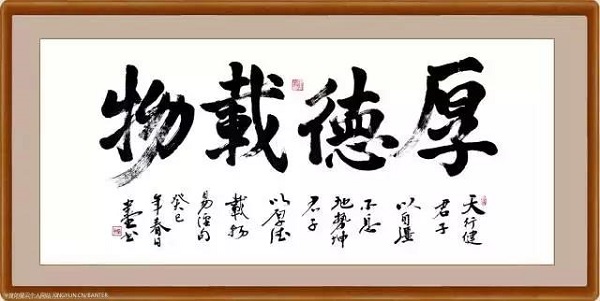 厚德載物
天行健
君子
以自強
不息
地勢坤
君子
以厚德
載物
易經句
癸巳
年春日